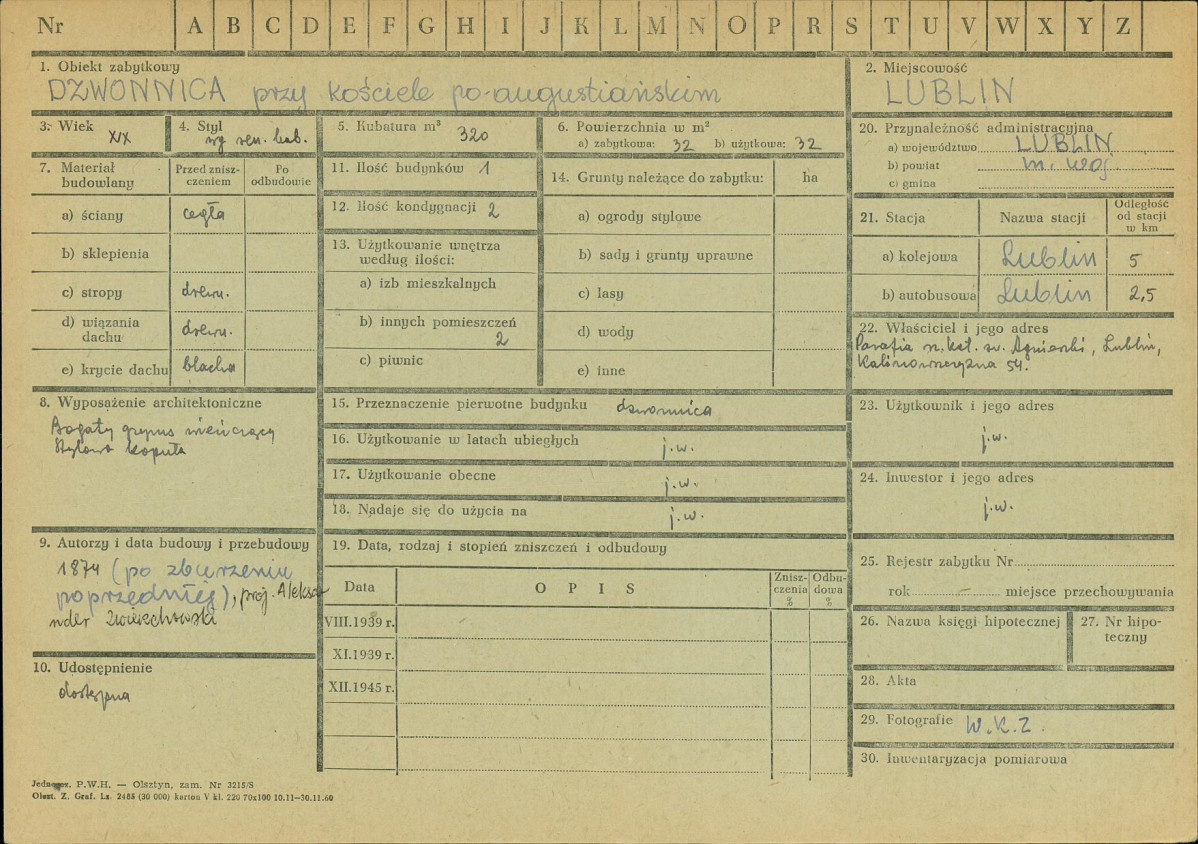 Nr A B C D E F G H I J K L M N O P R S T U V W X Y Z
1. Obiekt zabytkowy
DZWONNICA przy kościele po-augustiańskim
2. Miejscowość
LUBLIN
3. Wiek
XIX
4. Styl
5. Kubatura m³ 320
6. Powierzchnia w m²
a) zabytkowa: 32 b) użytkowa: 32
20. Przynależność administracyjna
a) województwo LUBLIN
b) powiat m. woj
c) gmina
7. Materiał budowlany
Przed zniszczeniem
Po odbudowie
a) ściany cegła
b) sklepienia
c) stropy drewn.
d) wiązania dachu drewn.
e) krycie dachu blacha
11. Ilość budynków 1
12. Ilość kondygnacji 2
13. Użytkowanie wnętrza
według ilości:
a) izb mieszkalnych
b) innych pomieszczeń
2
c) piwnic
14. Grunty należące do zabytku: ha
a) ogrody stylowe
b) sady i grunty uprawne
c) lasy
d) wody
e) inne
21. Stacja Nazwa stacji
Odległość
od stacji
w km
a) kolejowa Lublin 5
b) autobusowa Lublin 2,5
22. Właściciel i jego adres
Parafia rz. kat. św. Agnieszki, Lublin,
Kalinowszczyzna 54.
8. Wyposażenie architektoniczne
Bogaty gzyms wieńczący
Stylowa kopuła
15. Przeznaczenie pierwotne budynku dzwonnica
16. Użytkowanie w latach ubiegłych j.w.
17. Użytkowanie obecne j.w.
18. Nadaje się do użycia na j.w.
23. Użytkownik i jego adres
j.w.
24. Inwestor i jego adres
j.w.
9. Autorzy i data budowy i przebudowy
1874 (po zburzeniu
poprzedniej), proj. Aleksa-
nder Zwierzchowski
10. Udostępnienie
dostępna
19. Data, rodzaj i stopień zniszczeń i odbudowy
Data OPIS
Znisz-
czenia
%
Odbu-
dowa
%
VIII.1939 r.
XI.1939 r.
XII.1945 r.
25. Rejestr zabytku Nr
rok — miejsce przechowywania
26. Nazwa księgi hipotecznej
27. Nr hipo-
teczny
28. Akta
29. Fotografie W.K.Z.
30. Inwentaryzacja pomiarowa
P.W.H. — Olsztyn, zam. Nr 3215/S
Olszt. Z. Graf. Lz. 2485 (30 000) karton V kl. 220 70x100 10.11—30.11.60